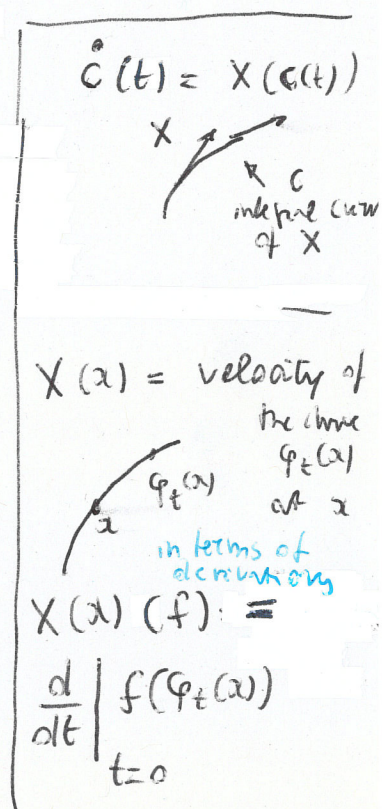 ċ(t) = X(c(t))
X
c
integral curve
of X
X(x) = velocity of
the curve
φ_t(x)
φ_t(x)
at x
x
in terms of
derivations
X(x)(f) :=
d/dt | f(φ_t(x))
t=0